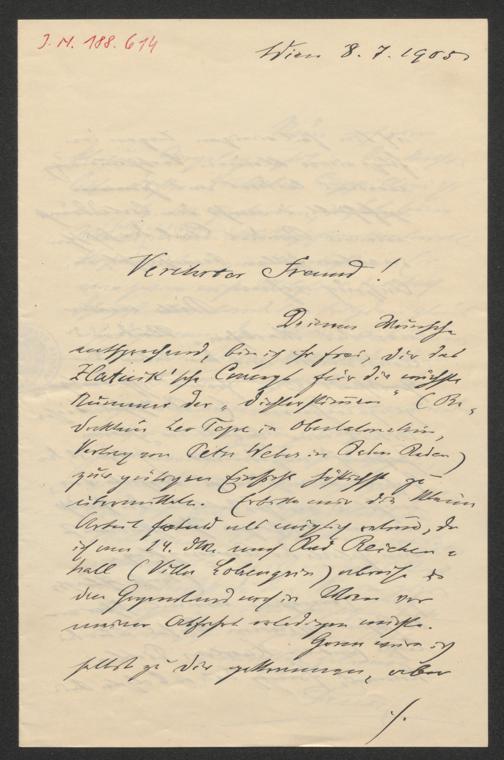 J.N. 188.614
Wien 8. 7. 1905
Verehrter Freund!
Deinem Wunsche
entsprechend, bin ich so frei, Dir das
Zlatnik'sche Concept für die nächste
Nummer der „Dichterstimmen" (Re-
daktion Leo Tepe in Oberlahnstein,
Verlag von Peter Weber in Baden Baden)
zur gütigen Einsicht höflichst zu
übermitteln. Erbitte mir die kleine
Arbeit sobald als möglich retour, da
ich am 14. ds. nach Bad Reichen-
hall (Villa Lohengrin) abreise &
den Gegenstand noch in Wien vor
meiner Abfahrt erledigen möchte.
Gerne wäre ich
selbst zu Dir gekommen, aber
./.